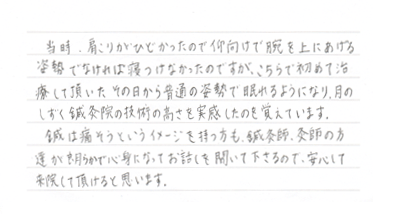 当時、肩こりがひどかったので仰向けで腕を上にあげる
姿勢でなければ寝つけなかったのですが、こちらで初めて治
療して頂いたその日から普通の姿勢で眠れるようになり、月の
しずく鍼灸院の技術の高さを実感したのを覚えています。
鍼は痛そうというイメージを持つ方も、鍼灸師、灸師の方
達が朗らかで心身になってお話しを聞いて下さるので、安心して
来院して頂けると思います。